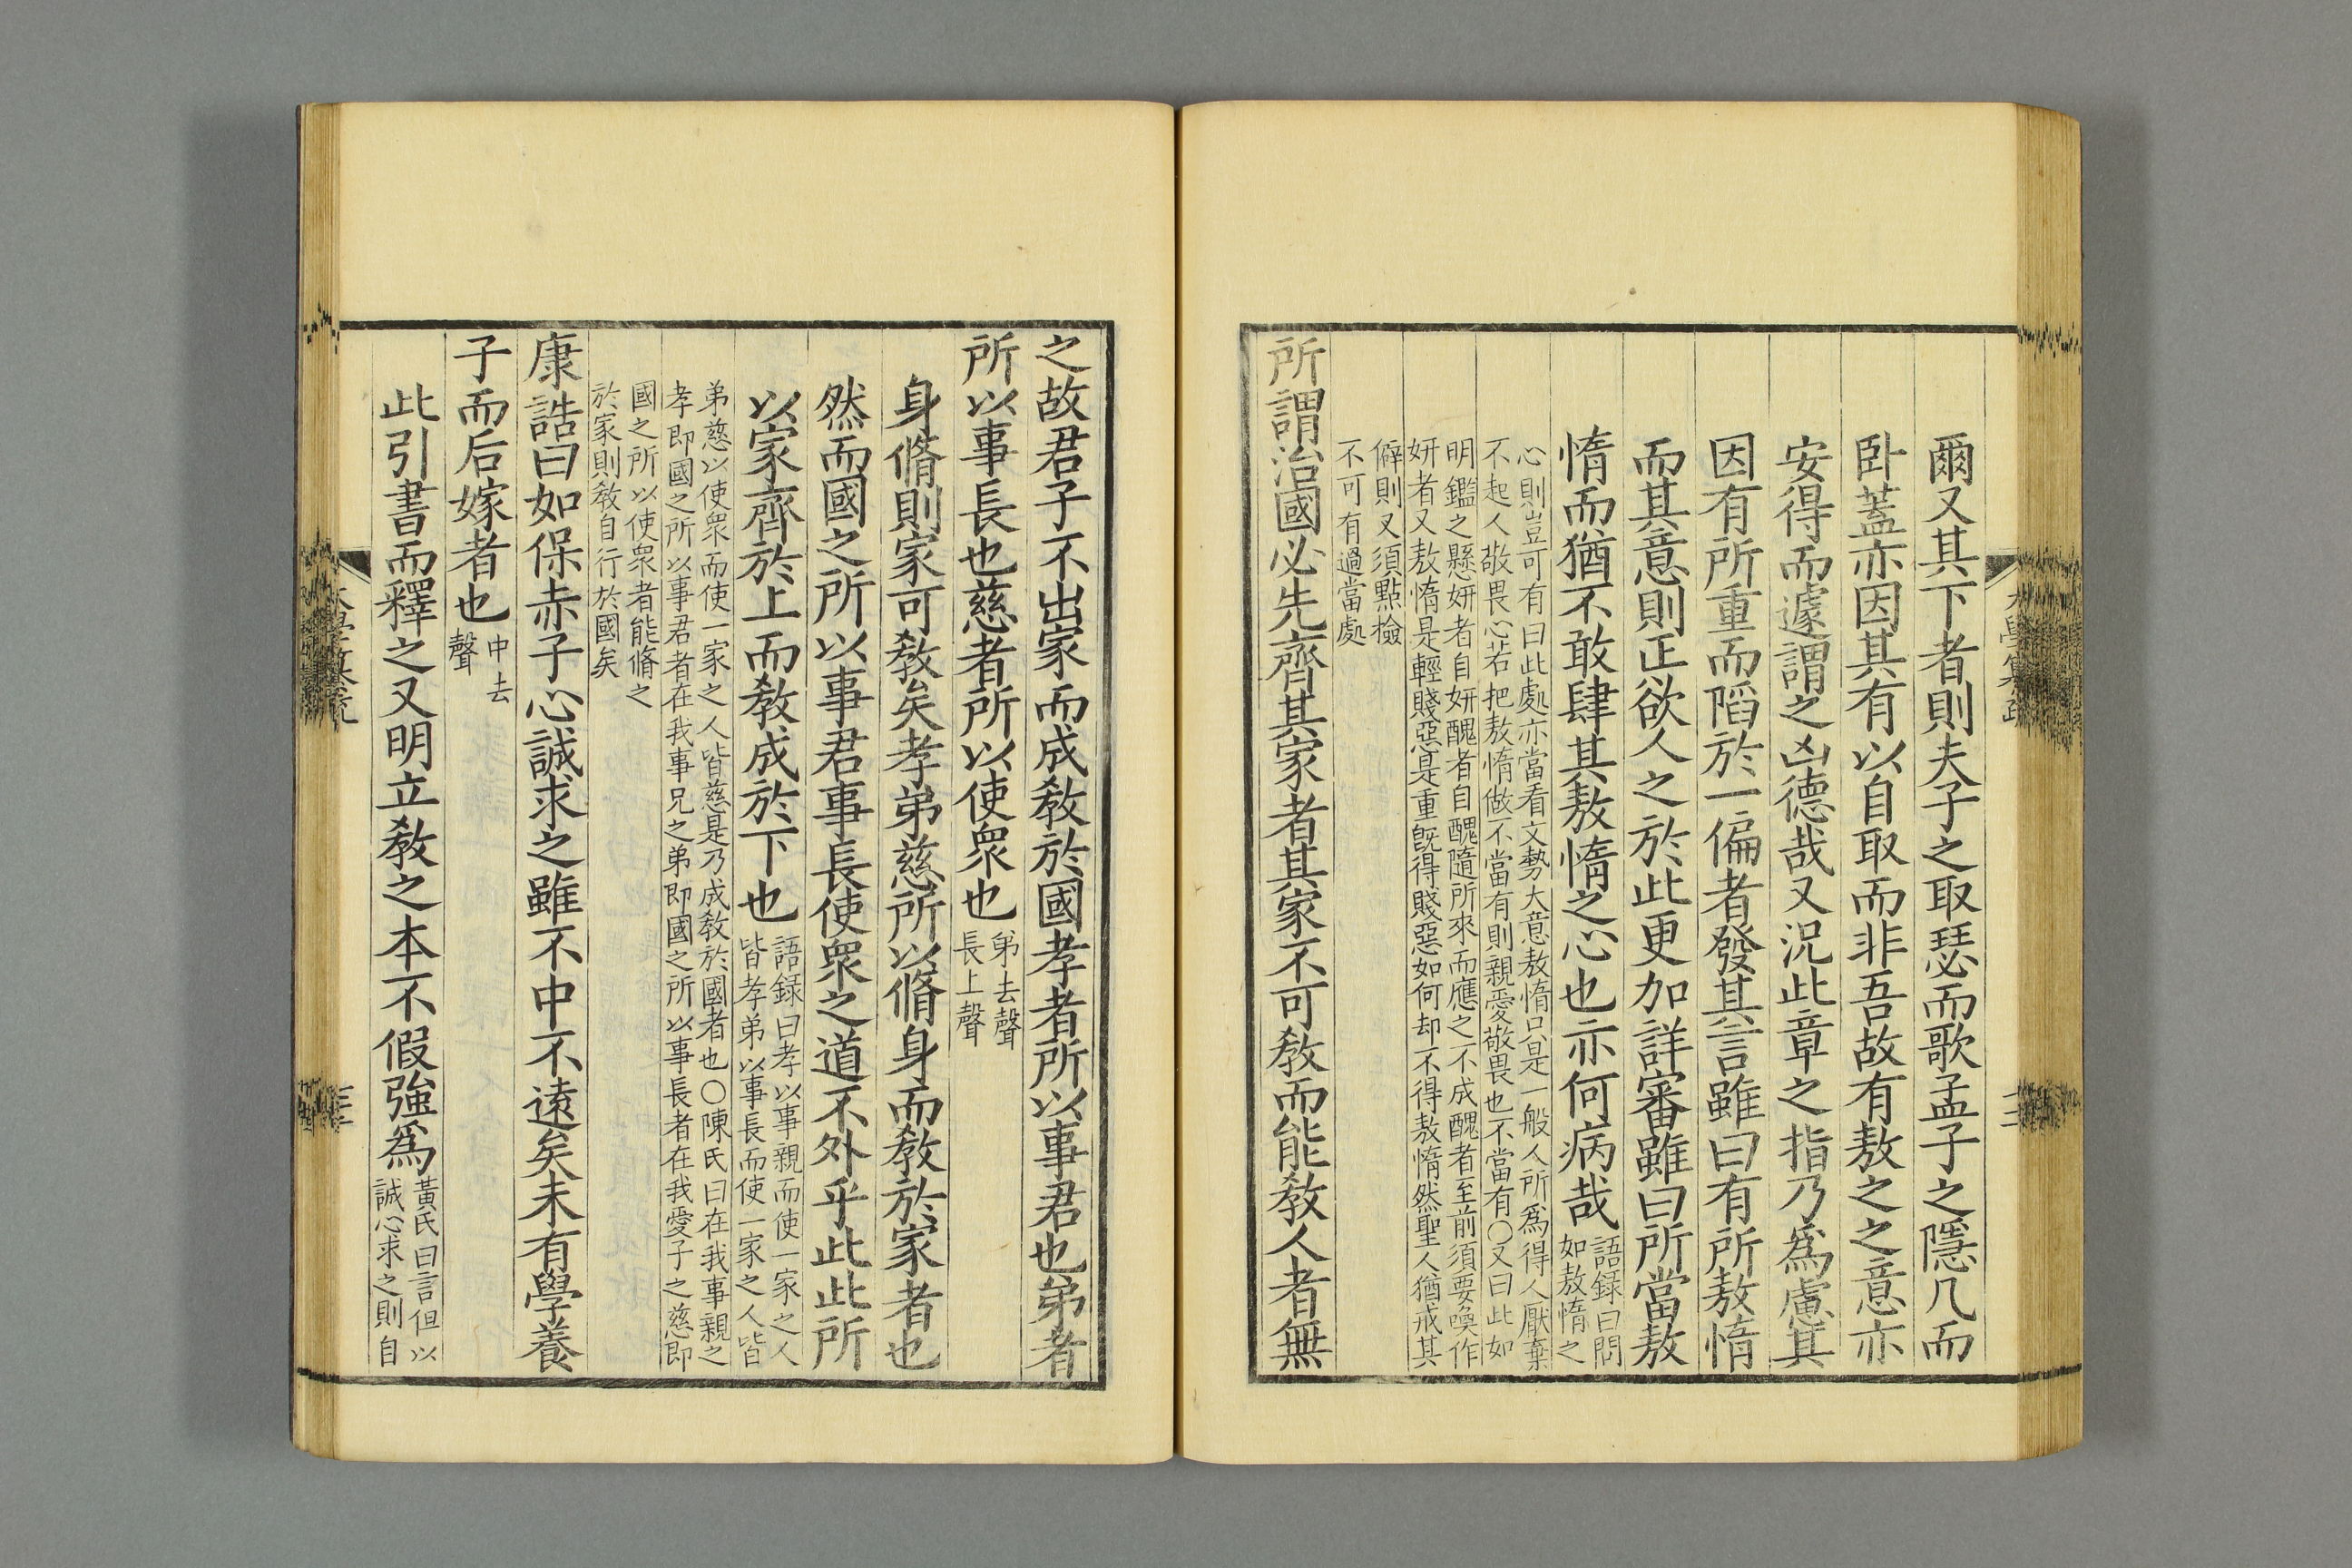 爾又其下者則夫子之取瑟而歌孟子之隱几而
卧蓋亦因其有以自取而非吾故有敖之之意亦
安得而遽謂之凶德哉又況此章之指乃爲慮其
因有所重而陷於一偏者發其言雖曰有所敖惰
而其意則正欲人之於此更加詳審雖曰所當敖
惰而猶不敢肆其敖惰之心也亦何病哉
語録曰問
如敖惰之
心則豈可有曰此處亦當看文勢大意敖惰只是一般人所爲得人厭棄
不起人敬畏心若把敖惰做不當有則親愛敬畏也不當有○又曰此如
明鑑之懸妍者自妍醜者自醜隨所來而應之不成醜者至前須要喚作
妍者又敖惰是輕賤惡是重旣得賤惡如何却不得敖惰然聖人猶戒其
僻則又須點檢
不可有過當處
所謂治國必先齊其家者其家不可敎而能敎人者無
之故君子不出家而成敎於國孝者所以事君也弟者
所以事長也慈者所以使衆也
弟去聲
長上聲
身脩則家可敎矣孝弟慈所以脩身而敎於家者也
然而國之所以事君事長使衆之道不外乎此此所
以家齊於上而敎成於下也
語録曰孝以事親而使一家之人
皆孝弟以事長而使一家之人皆
弟慈以使衆而使一家之人皆慈是乃成敎於國者也○陳氏曰在我事親之
孝即國之所以事君者在我事兄之弟即國之所以事長者在我愛子之慈即
國之所以使衆者能脩之
於家則敎自行於國矣
康誥曰如保赤子心誠求之雖不中不遠矣未有學養
子而后嫁者也
中去
聲
此引書而釋之又明立敎之本不假強爲
黃氏曰言但以
誠心求之則自